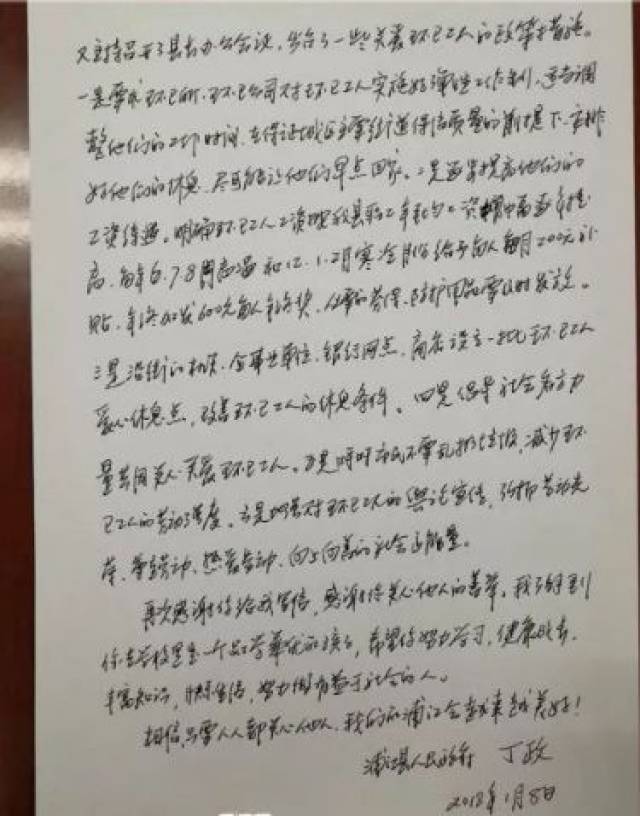 又专门召开了县长办公会议，出台了一些关爱环卫工人的政策措施。
一是要求环卫所、环卫公司对环卫工人实施好弹性工作制，适当调
整他们的工作时间，在保证城区主要街道保洁质量的前提下，安排
好他们的休息，尽可能让他们早点回家。二是逐步提高他们的
工资待遇。明确环卫工人工资按我县职工年平均工资增幅逐年提
高，每年6、7、8月高温和12、1、2月寒冷月份给予每人每月200元补
贴，年终加发600元每人年终奖，必要的劳保、防护用品要及时发放。
三是沿街的机关、企事业单位、银行网点、商店设立一批环卫工人
爱心休息点，改善环卫工人的休息条件。四是倡导社会各方力
量共同关心关爱环卫工人。五是呼吁市民不要乱扔垃圾，减少环
卫工人的劳动强度。六是加强对环卫工人的舆论宣传，弘扬劳动光
荣、尊重劳动、热爱劳动、向上向善的社会正能量。
再次感谢你给我写信，感谢你关心他人的善举。我了解到
你在学校里是一个品学兼优的孩子，希望你努力学习，健康成长，
丰富知识，快乐生活，努力做有益于社会的人。
相信只要人人都关心他人，我们的浦江会越来越美好！
浦江县人民政府 丁政
2018年1月8日